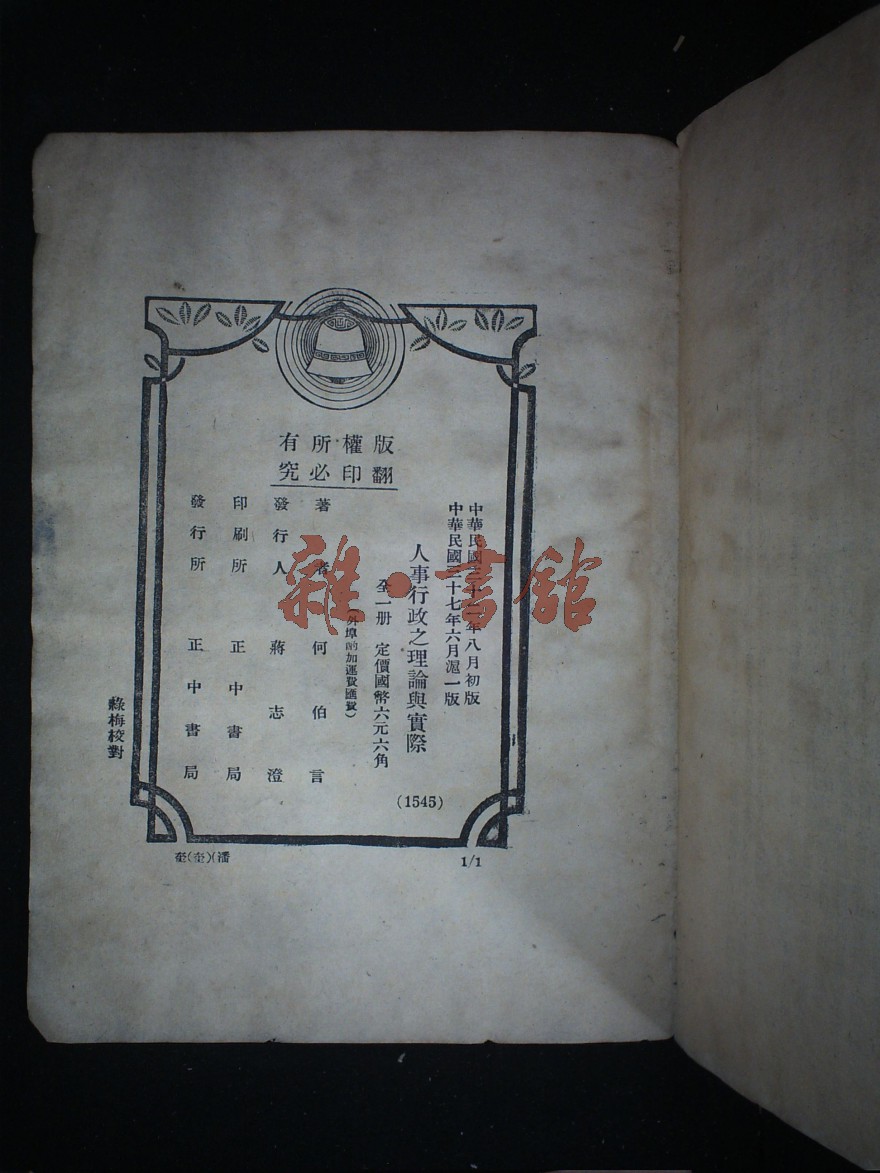 版權所有
翻印必究
中華民國三十一年八月初版
中華民國三十七年六月滬一版
人事行政之理論與實際
全一册 定價國幣六元六角
(外埠酌加運費匯費)
著者 何伯言
發行人 蔣志澄
印刷所 正中書局
發行所 正中書局
(1545)
校對
1/1
雜·書館